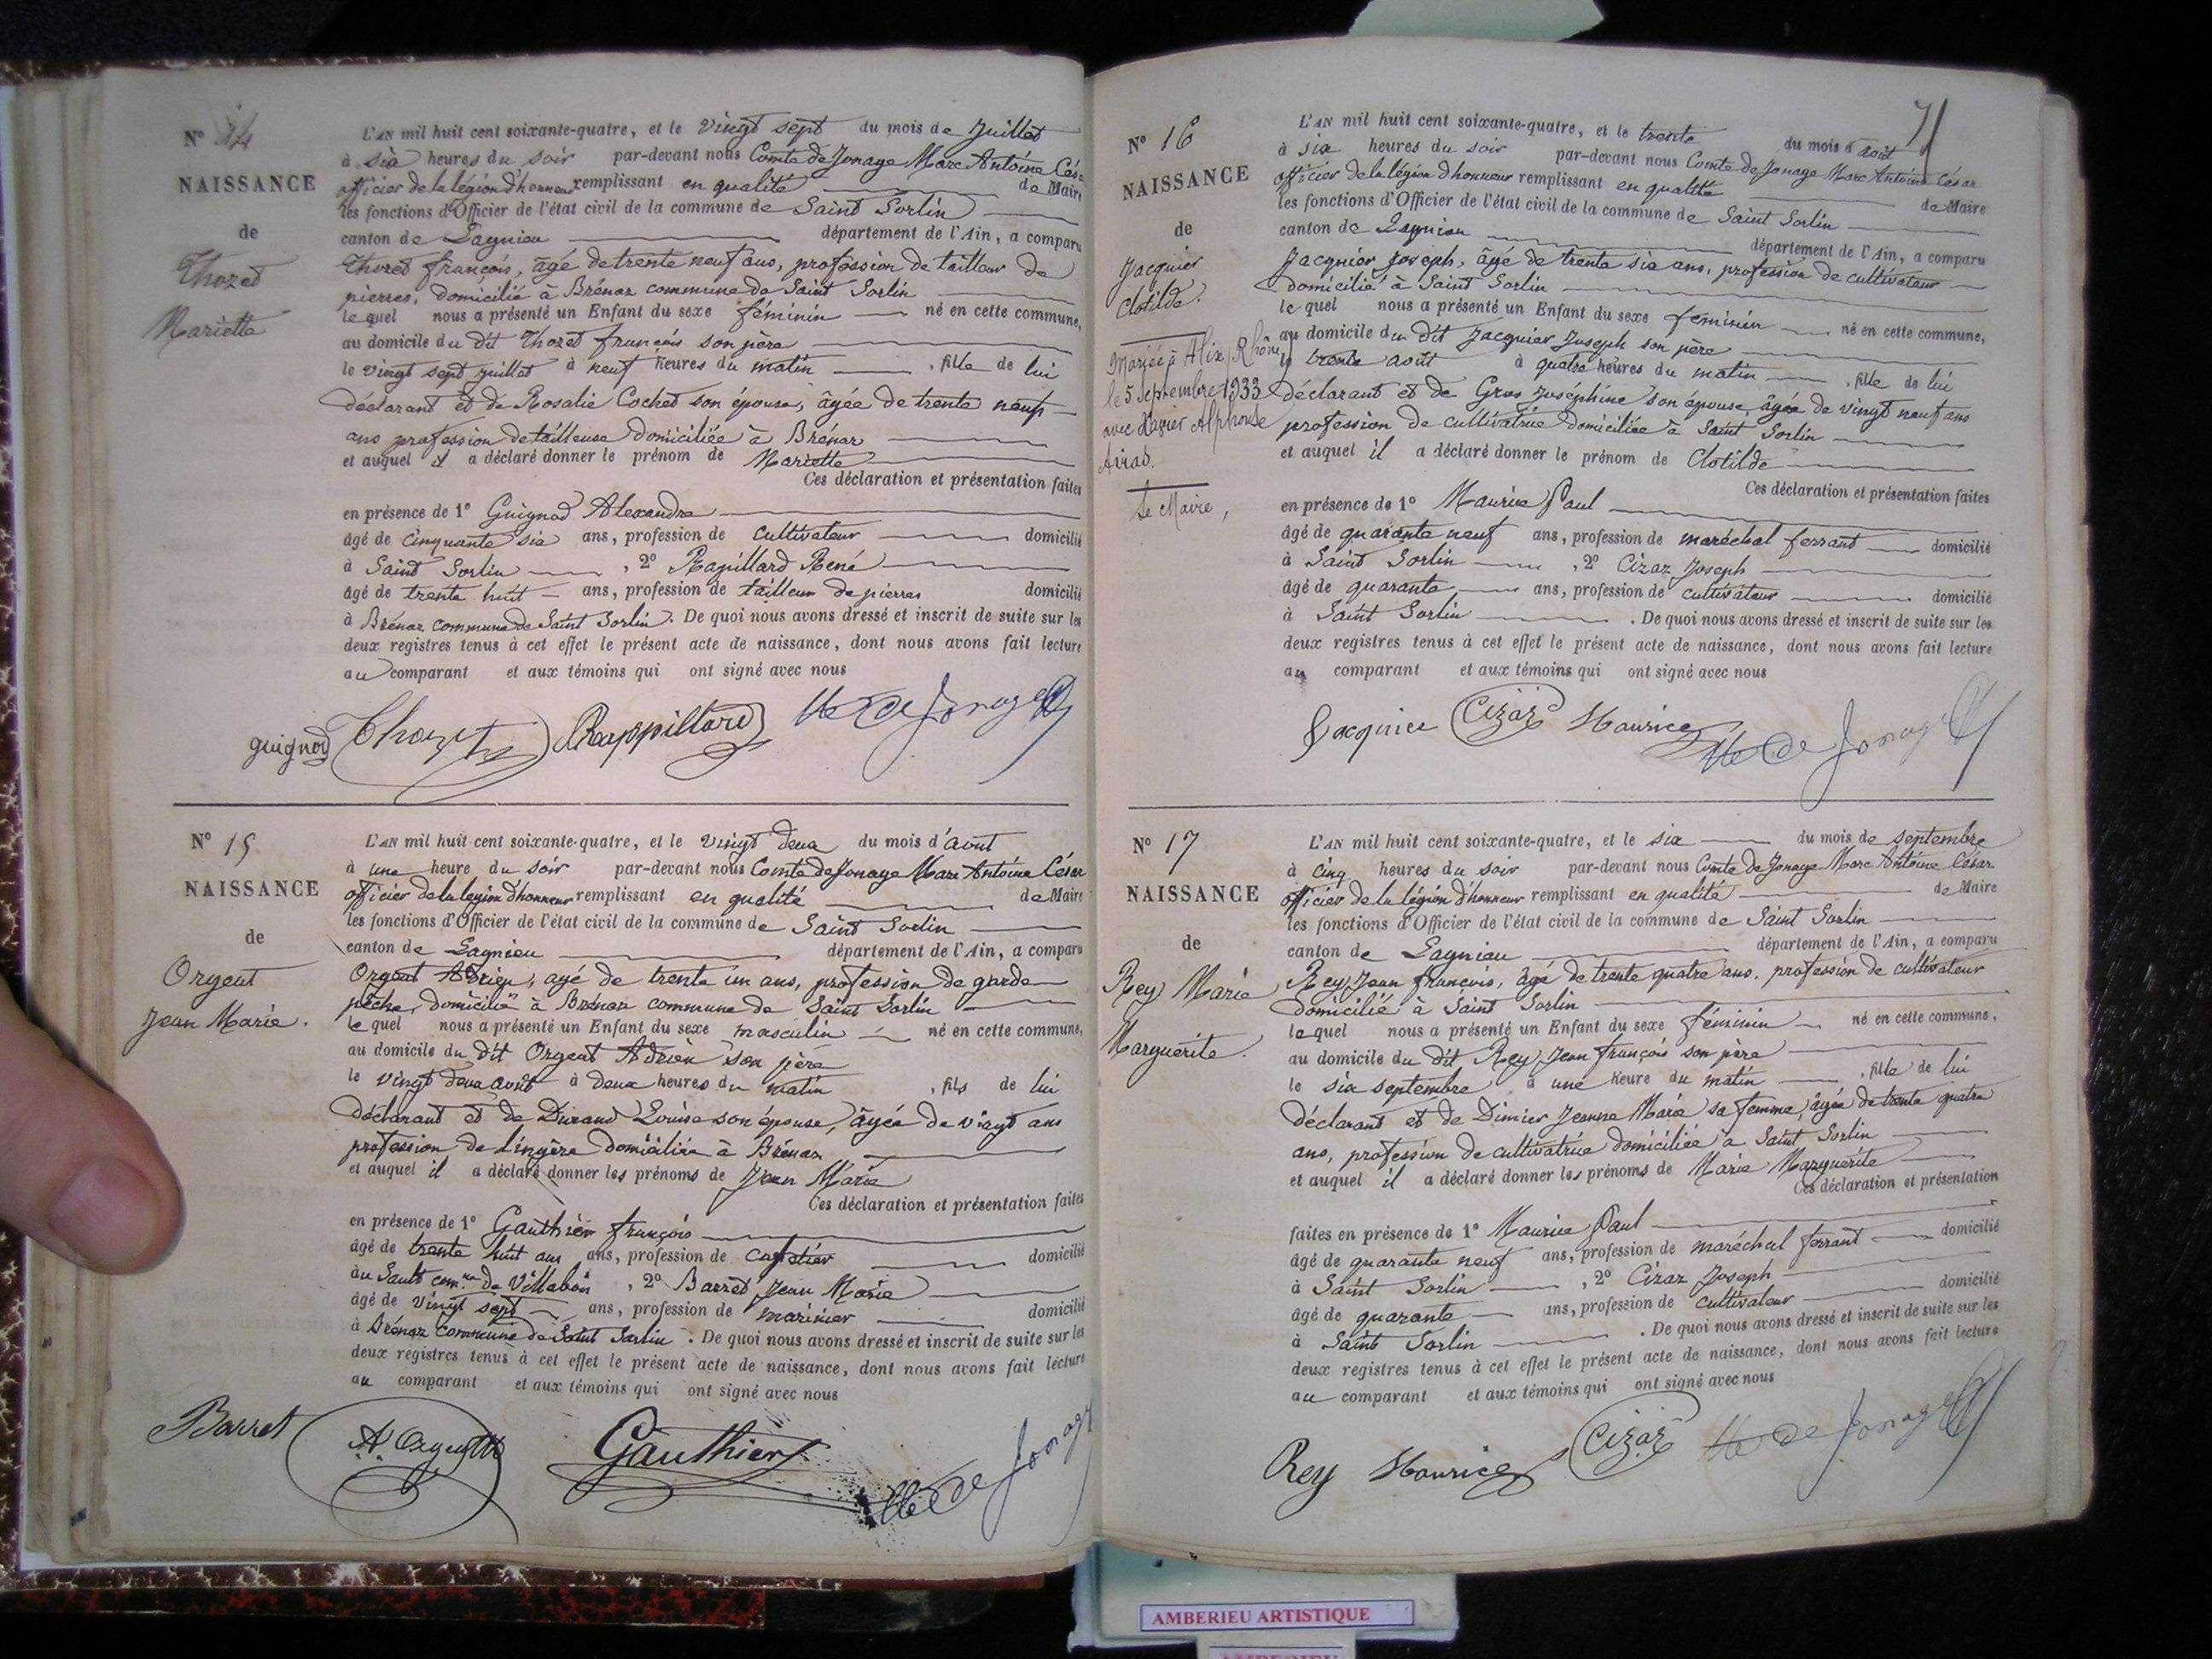 N° 14
NAISSANCE
de
Thozet
Mariette
L'AN mil huit cent soixante-quatre, et le vingt sept du mois de Juillet
à six heures du soir par-devant nous Comte de Jonage Marc Antoine César
officier de la légion d'honneur remplissant en qualité de Maire
les fonctions d'Officier de l'état civil de la commune de Saint Sorlin
canton de Lagnieu département de l'Ain, a comparu
Thozet françois, âgé de trente neuf ans, profession de tailleur de
pierres, domicilié à Brénaz commune de Saint Sorlin
lequel nous a présenté un Enfant du sexe féminin né en cette commune,
au domicile du dit Thozet françois son père
le vingt sept juillet à neuf heures du matin , fille de lui
déclarant et de Rosalie Cochet son épouse, âgée de trente neuf
ans profession de tailleuse domiciliée à Brénaz
et auquel il a déclaré donner le prénom de Mariette
Ces déclaration et présentation faites
en présence de 1° Guignod Alexandre
âgé de cinquante six ans, profession de cultivateur domicilié
à Saint Sorlin , 2° Rapillard René
âgé de trente huit ans, profession de tailleur de pierres domicilié
à Brénaz commune de Saint Sorlin. De quoi nous avons dressé et inscrit de suite sur les
deux registres tenus à cet effet le présent acte de naissance, dont nous avons fait lecture
au comparant et aux témoins qui ont signé avec nous
guignod Thozet Rappillard de Jonage
N° 15
NAISSANCE
de
Orgeut
Jean Marie.
L'AN mil huit cent soixante-quatre, et le vingt deux du mois d'août
à une heure du soir par-devant nous Comte de Jonage Marc Antoine César
officier de la légion d'honneur remplissant en qualité de Maire
les fonctions d'Officier de l'état civil de la commune de Saint Sorlin
canton de Lagnieu département de l'Ain, a comparu
Orgeut Adrien, agé de trente un ans, profession de garde
pêche, domicilié à Brénaz commune de Saint Sorlin
lequel nous a présenté un Enfant du sexe masculin né en cette commune,
au domicile du dit Orgeut Adrien son père
le vingt deux août à deux heures du matin , fils de lui
déclarant et de Durand Louise son épouse, âgée de vingt ans
profession de lingère domiciliée à Brénaz
et auquel il a déclaré donner les prénoms de Jean Marie
Ces déclaration et présentation faites
en présence de 1° Gauthier françois
âgé de trente huit ans ans, profession de cafetier domicilié
au Sault comne de Villebois , 2° Barret Jean Marie
âgé de vingt sept ans, profession de marinier domicilié
à Brénaz commune de Saint Sorlin. De quoi nous avons dressé et inscrit de suite sur les
deux registres tenus à cet effet le présent acte de naissance, dont nous avons fait lecture
au comparant et aux témoins qui ont signé avec nous
Barret A. Orgeut Gauthier de Jonage
N° 16
NAISSANCE
de
Jacquier
Clotilde.
Mariée à Alix (Rhône)
le 5 septembre 1933
avec Xavier Alphonse
Le Maire,
L'AN mil huit cent soixante-quatre, et le trente du mois d'août
à six heures du soir par-devant nous Comte de Jonage Marc Antoine César
officier de la légion d'honneur remplissant en qualité de Maire
les fonctions d'Officier de l'état civil de la commune de Saint Sorlin
canton de Lagnieu département de l'Ain, a comparu
Jacquier Joseph, âgé de trente six ans, profession de cultivateur
domicilié à Saint Sorlin
lequel nous a présenté un Enfant du sexe féminin né en cette commune,
au domicile du dit Jacquier Joseph son père
le trente août à quatre heures du matin , fille de lui
déclarant et de Gros Joséphine son épouse, âgée de vingt neuf ans
profession de cultivatrice domiciliée à Saint Sorlin
et auquel il a déclaré donner le prénom de Clotilde
Ces déclaration et présentation faites
en présence de 1° Maurice Paul
âgé de quarante neuf ans, profession de maréchal ferrant domicilié
à Saint Sorlin , 2° Cizaz Joseph
âgé de quarante ans, profession de cultivateur domicilié
à Saint Sorlin . De quoi nous avons dressé et inscrit de suite sur les
deux registres tenus à cet effet le présent acte de naissance, dont nous avons fait lecture
au comparant et aux témoins qui ont signé avec nous
Jacquier Cizaz Maurice de Jonage
N° 17
NAISSANCE
de
Rey Marie
Marguerite.
L'AN mil huit cent soixante-quatre, et le six du mois de septembre
à cinq heures du soir par-devant nous Comte de Jonage Marc Antoine César
officier de la légion d'honneur remplissant en qualité de Maire
les fonctions d'Officier de l'état civil de la commune de Saint Sorlin
canton de Lagnieu département de l'Ain, a comparu
Rey Jean françois, âgé de trente quatre ans, profession de cultivateur
domicilié à Saint Sorlin
lequel nous a présenté un Enfant du sexe féminin né en cette commune,
au domicile du dit Rey Jean françois son père
le six septembre à une heure du matin , fille de lui
déclarant et de Dimier Jeanne Marie sa femme, âgée de trente quatre
ans, profession de cultivatrice domiciliée à Saint Sorlin
et auquel il a déclaré donner les prénoms de Marie Marguerite
Ces déclaration et présentation
faites en présence de 1° Maurice Paul
âgé de quarante neuf ans, profession de maréchal ferrant domicilié
à Saint Sorlin , 2° Cizaz Joseph
âgé de quarante ans, profession de cultivateur domicilié
à Saint Sorlin . De quoi nous avons dressé et inscrit de suite sur les
deux registres tenus à cet effet le présent acte de naissance, dont nous avons fait lecture
au comparant et aux témoins qui ont signé avec nous
Rey Maurice Cizaz de Jonage
AMBERIEU ARTISTIQUE
AMBERIEU